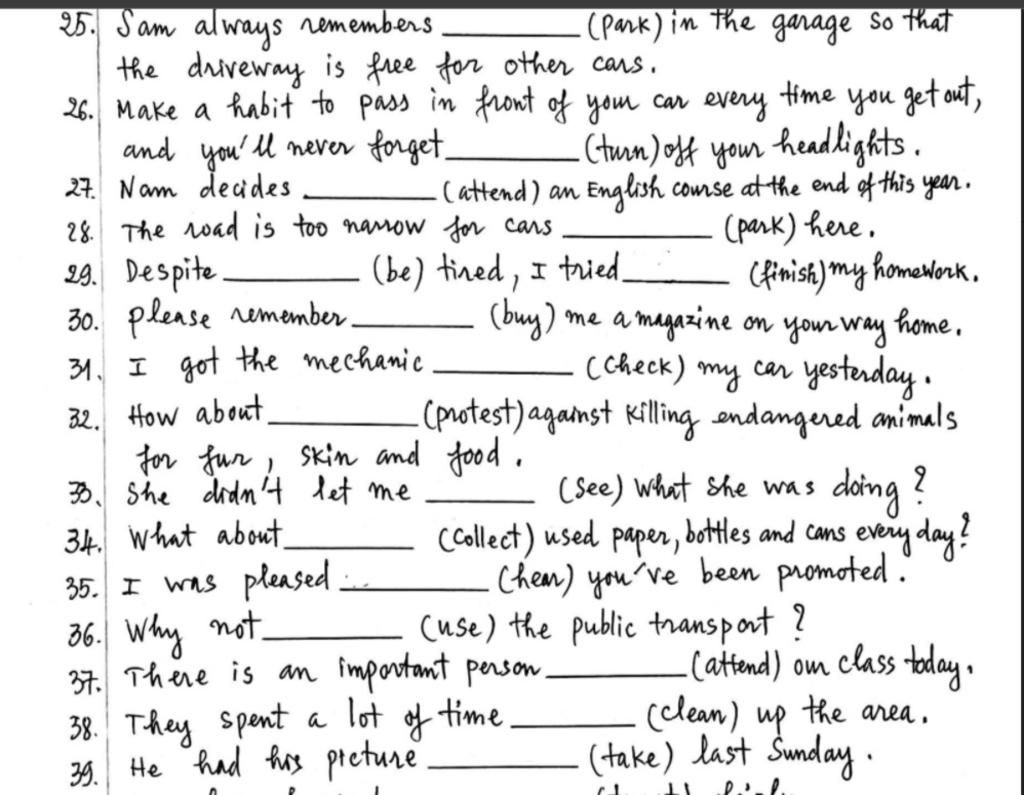 25. Sam always remembers __________ (park) in the garage so that
the driveway is free for other cars.
26. Make a habit to pass in front of your car every time you get out,
and you'll never forget __________ (turn) off your headlights.
27. Nam decides __________ (attend) an English course at the end of this year.
28. The road is too narrow for cars __________ (park) here.
29. Despite __________ (be) tired, I tried __________ (finish) my homework.
30. please remember __________ (buy) me a magazine on your way home.
31. I got the mechanic __________ (check) my car yesterday.
32. How about __________ (protest) against killing endangered animals
for fur, skin and food.
33. She didn't let me __________ (see) what she was doing?
34. What about __________ (collect) used paper, bottles and cans every day?
35. I was pleased __________ (hear) you've been promoted.
36. Why not __________ (use) the public transport?
37. There is an important person __________ (attend) our class today.
38. They spent a lot of time __________ (clean) up the area.
39. He had his picture __________ (take) last Sunday.